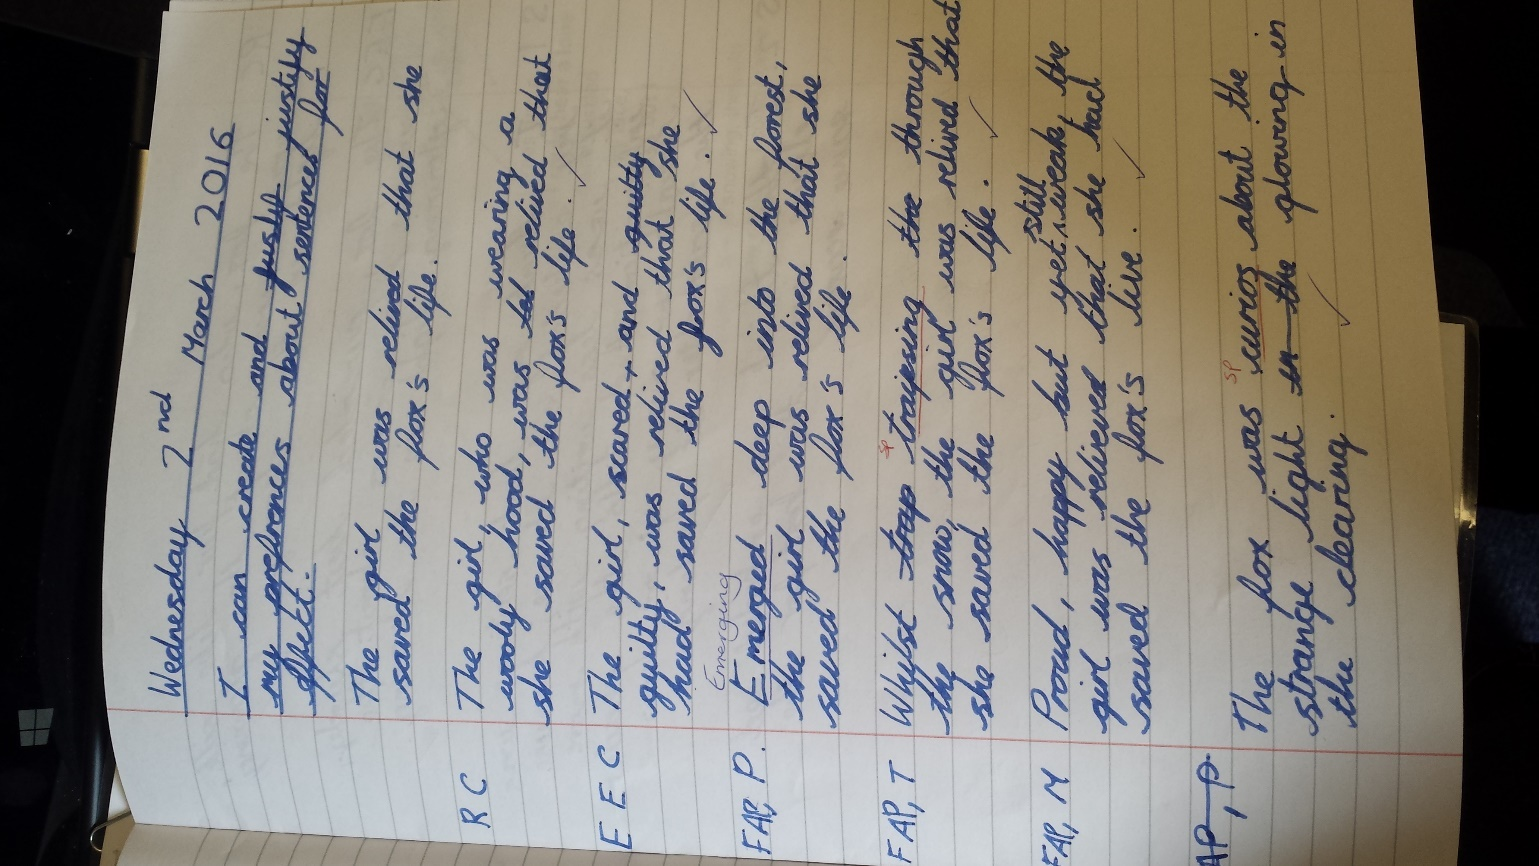 Wednesday 2nd March 2016
I can create and justify justify
my prefrences about sentences for
effect.
The girl was relived that she
saved the fox's life.
R C The girl, who was wearing a
wooly hood, was relived that
she saved the fox's life. ✓
E E C The girl, scared, and guilty
guilty, was relived that she
had saved the fox's life. ✓
Emerging
FAP, P. Emergied deep into the forest,
the girl was relived that she
saved the fox's life.
sp
FAP, T Whilst trap traipising the through
the snow, the girl was relived that
she saved the fox's life. ✓
still
FAP, M Proud, happy but yet weak the
girl was relieved that she had
saved the fox's live. ✓
sp
AP, P The fox was curios about the
strange light in the glowing in
the clearing. ✓